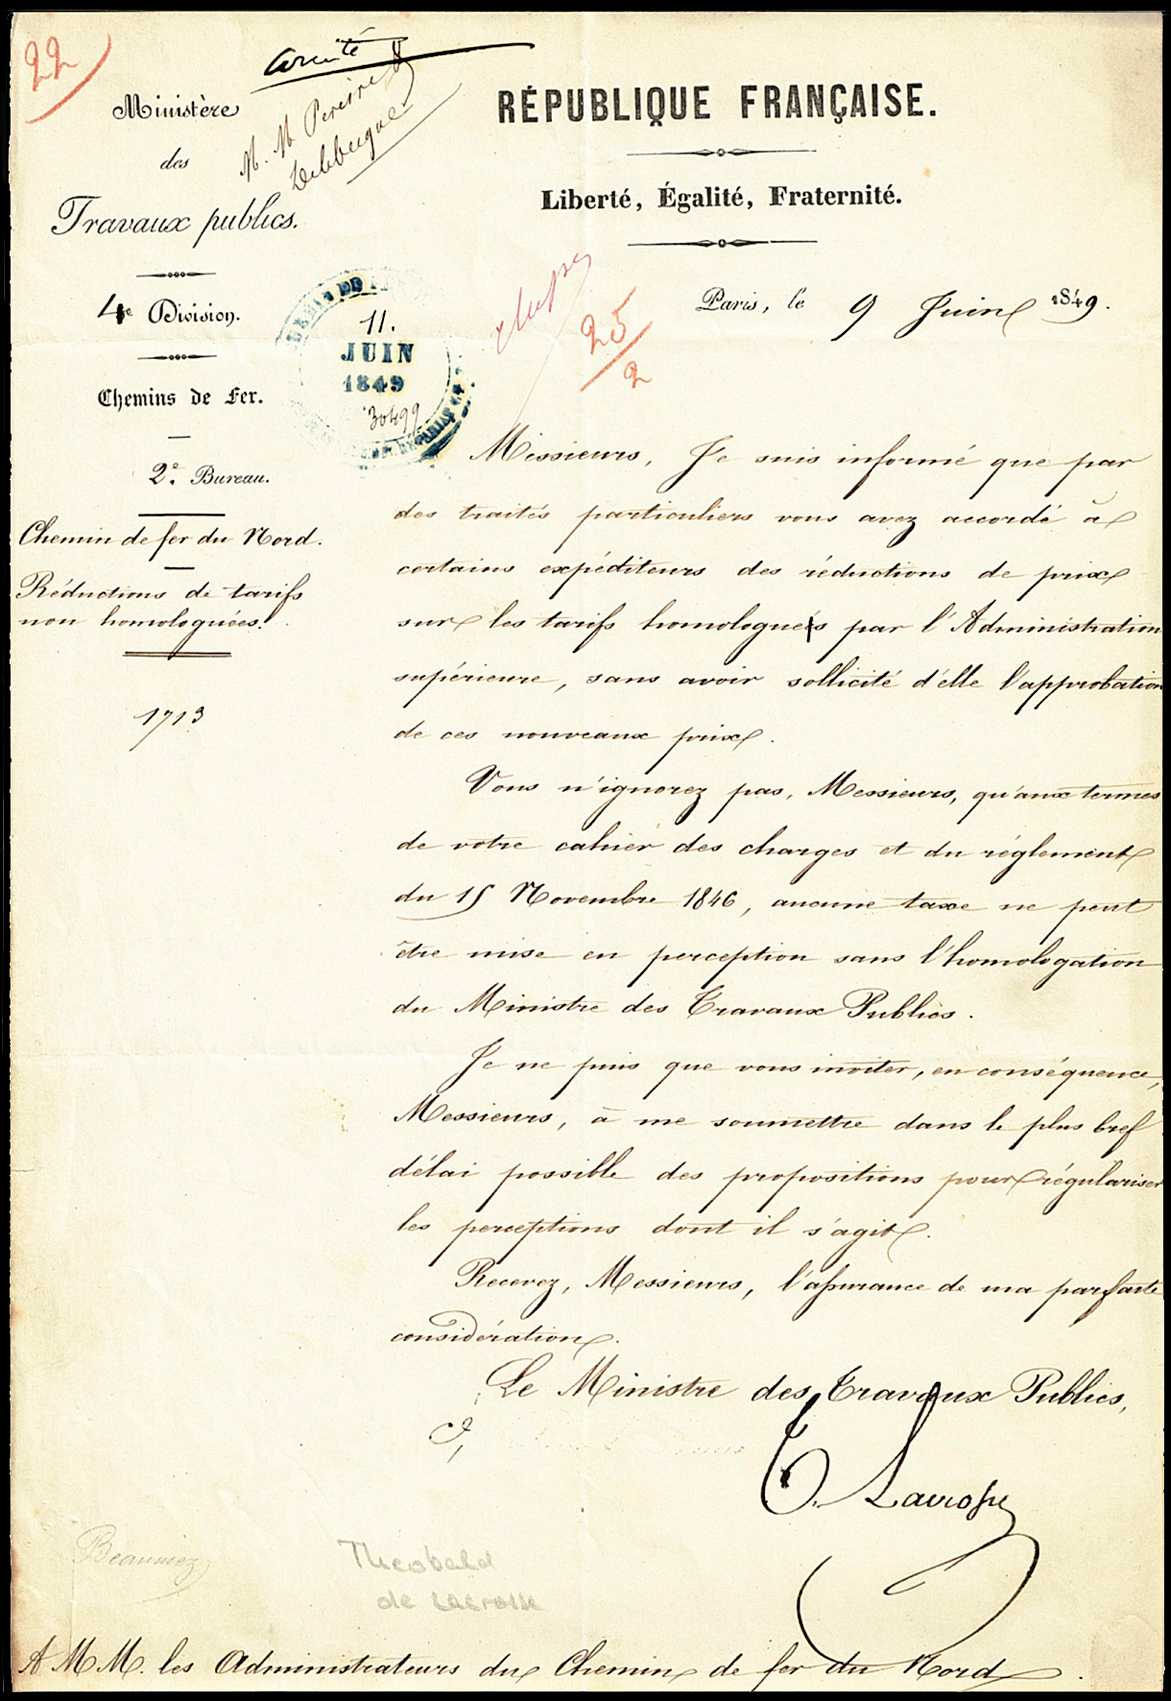 22
Comité
M. M. Pereire &
Delebecque
Ministère
des
Travaux publics.
4e Division.
Chemins de Fer.
2e. Bureau.
Chemin de fer du Nord.
Réductions de tarifs
non homologuées.
1713
RÉPUBLIQUE FRANÇAISE.
Liberté, Égalité, Fraternité.
11.
JUIN
1849
30499
25/2
Paris, le 9 Juin 1849.
Messieurs, Je suis informé que par
des traités particuliers vous avez accordé à
certains expéditeurs des réductions de prix
sur les tarifs homologués par l'Administration
supérieure, sans avoir sollicité d'elle l'approbation
de ces nouveaux prix.
Vous n'ignorez pas, Messieurs, qu'aux termes
de votre cahier des charges et du réglement
du 15 Novembre 1846, aucune taxe ne peut
être mise en perception sans l'homologation
du Ministre des Travaux Publics.
Je ne puis que vous inviter, en conséquence,
Messieurs, à me soumettre dans le plus bref
délai possible des propositions pour régulariser
les perceptions dont il s'agit.
Recevez, Messieurs, l'assurance de ma parfaite
considération.
Le Ministre des Travaux Publics,
T. Lacrosse
Theobald
de Lacrosse
A M M. les Administrateurs du Chemin de fer du Nord.